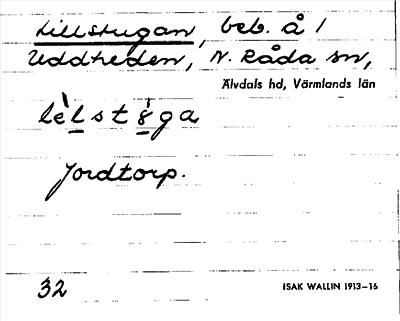 Lillstugan, beb. å /
Uddheden, N. Råda sn,
Älvdals hd, Värmlands län
lèlstöga
Jordtorp.
32
ISAK WALLIN 1913–16